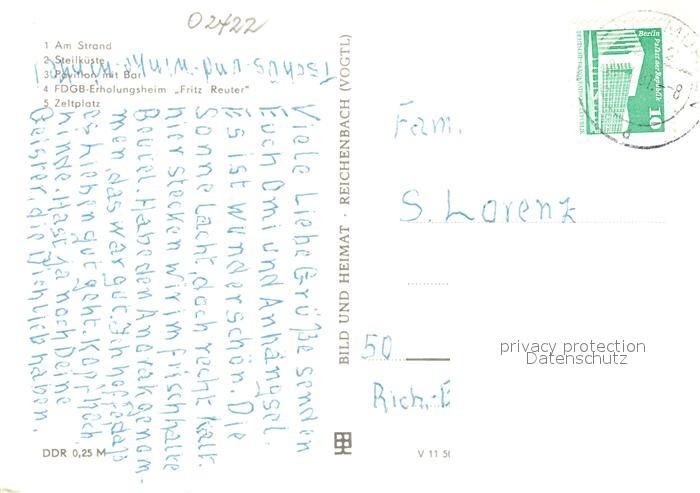 02422
1 Am Strand
2 Steilküste
3 Pavillon mit Bar
4 FDGB-Erholungsheim „Fritz Reuter"
5 Zeltplatz
Tschüs und winki-winki!
Viele liebe Grüße senden
Euch Omi und Anhängsel.
Es ist wunderschön. Die
Sonne lacht, doch recht kalt.
hier stecken wir im Frischhalte
Beutel. Habe den Anorak genom-
men, das war gut. Ich hoffe, daß
es hieben gut geht. Kopf hoch
Kinde. Hast ja noch Deine
Geister, die Dich lieb haben.
DDR 0,25 M
BILD UND HEIMAT · REICHENBACH (VOGTL)
V 11 50
Berlin
Palast der Republik
10
Fam.
S. Lorenz
50
Rich.-E
privacy protection
Datenschutz